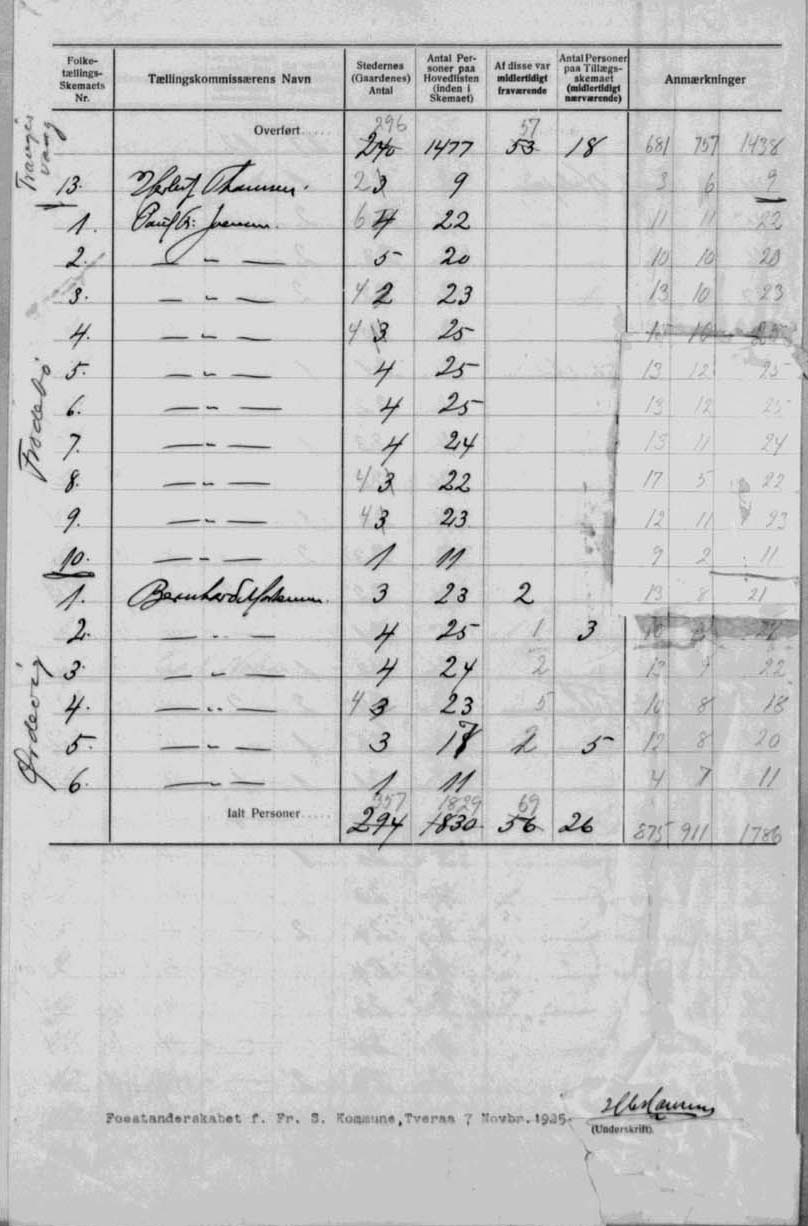 Folke- tællings- Skemaets Nr. | Tællingskommissærens Navn | Stedernes (Gaardenes) Antal | Antal Per- soner paa Hovedlisten (inden i Skemaet) | Af disse var midlertidigt fraværende | Antal Personer paa Tillægs- skemaet (midlertidigt nærværende) | Anmærkninger
296 57
Overført..... 240 1477 53 18 681 757 1438
13. 2 3 9 3 6 9
1. 6 4 22 11 11 22
2. — " — 5 20 10 10 20
3. — " — 4 2 23 13 10 23
Frodebø
4. — " — 4 3 25 15 10 25
5. — " — 4 25 13 12 25
6. — " — 4 25 13 12 25
7. — " — 4 24 13 11 24
8. — " — 4 3 22 17 5 22
9. — " — 4 3 23 12 11 23
10. — " — 1 11 9 2 11
1. 3 23 2 13 8 21
Ørdevig
2. — " — 4 25 1 3 24
3. — " — 4 24 2 22
4. — " — 4 3 23 5 10 8 18
5. — " — 3 2 5 12 8 20
6. — " — 1 11 4 7 11
357 1829 69
Ialt Personer..... 294 1830 56 26 875 911 1786
Foestanderskabet f. Fr. S. Kommune,Tveraa 7 Novbr.1925.
(Underskrift).